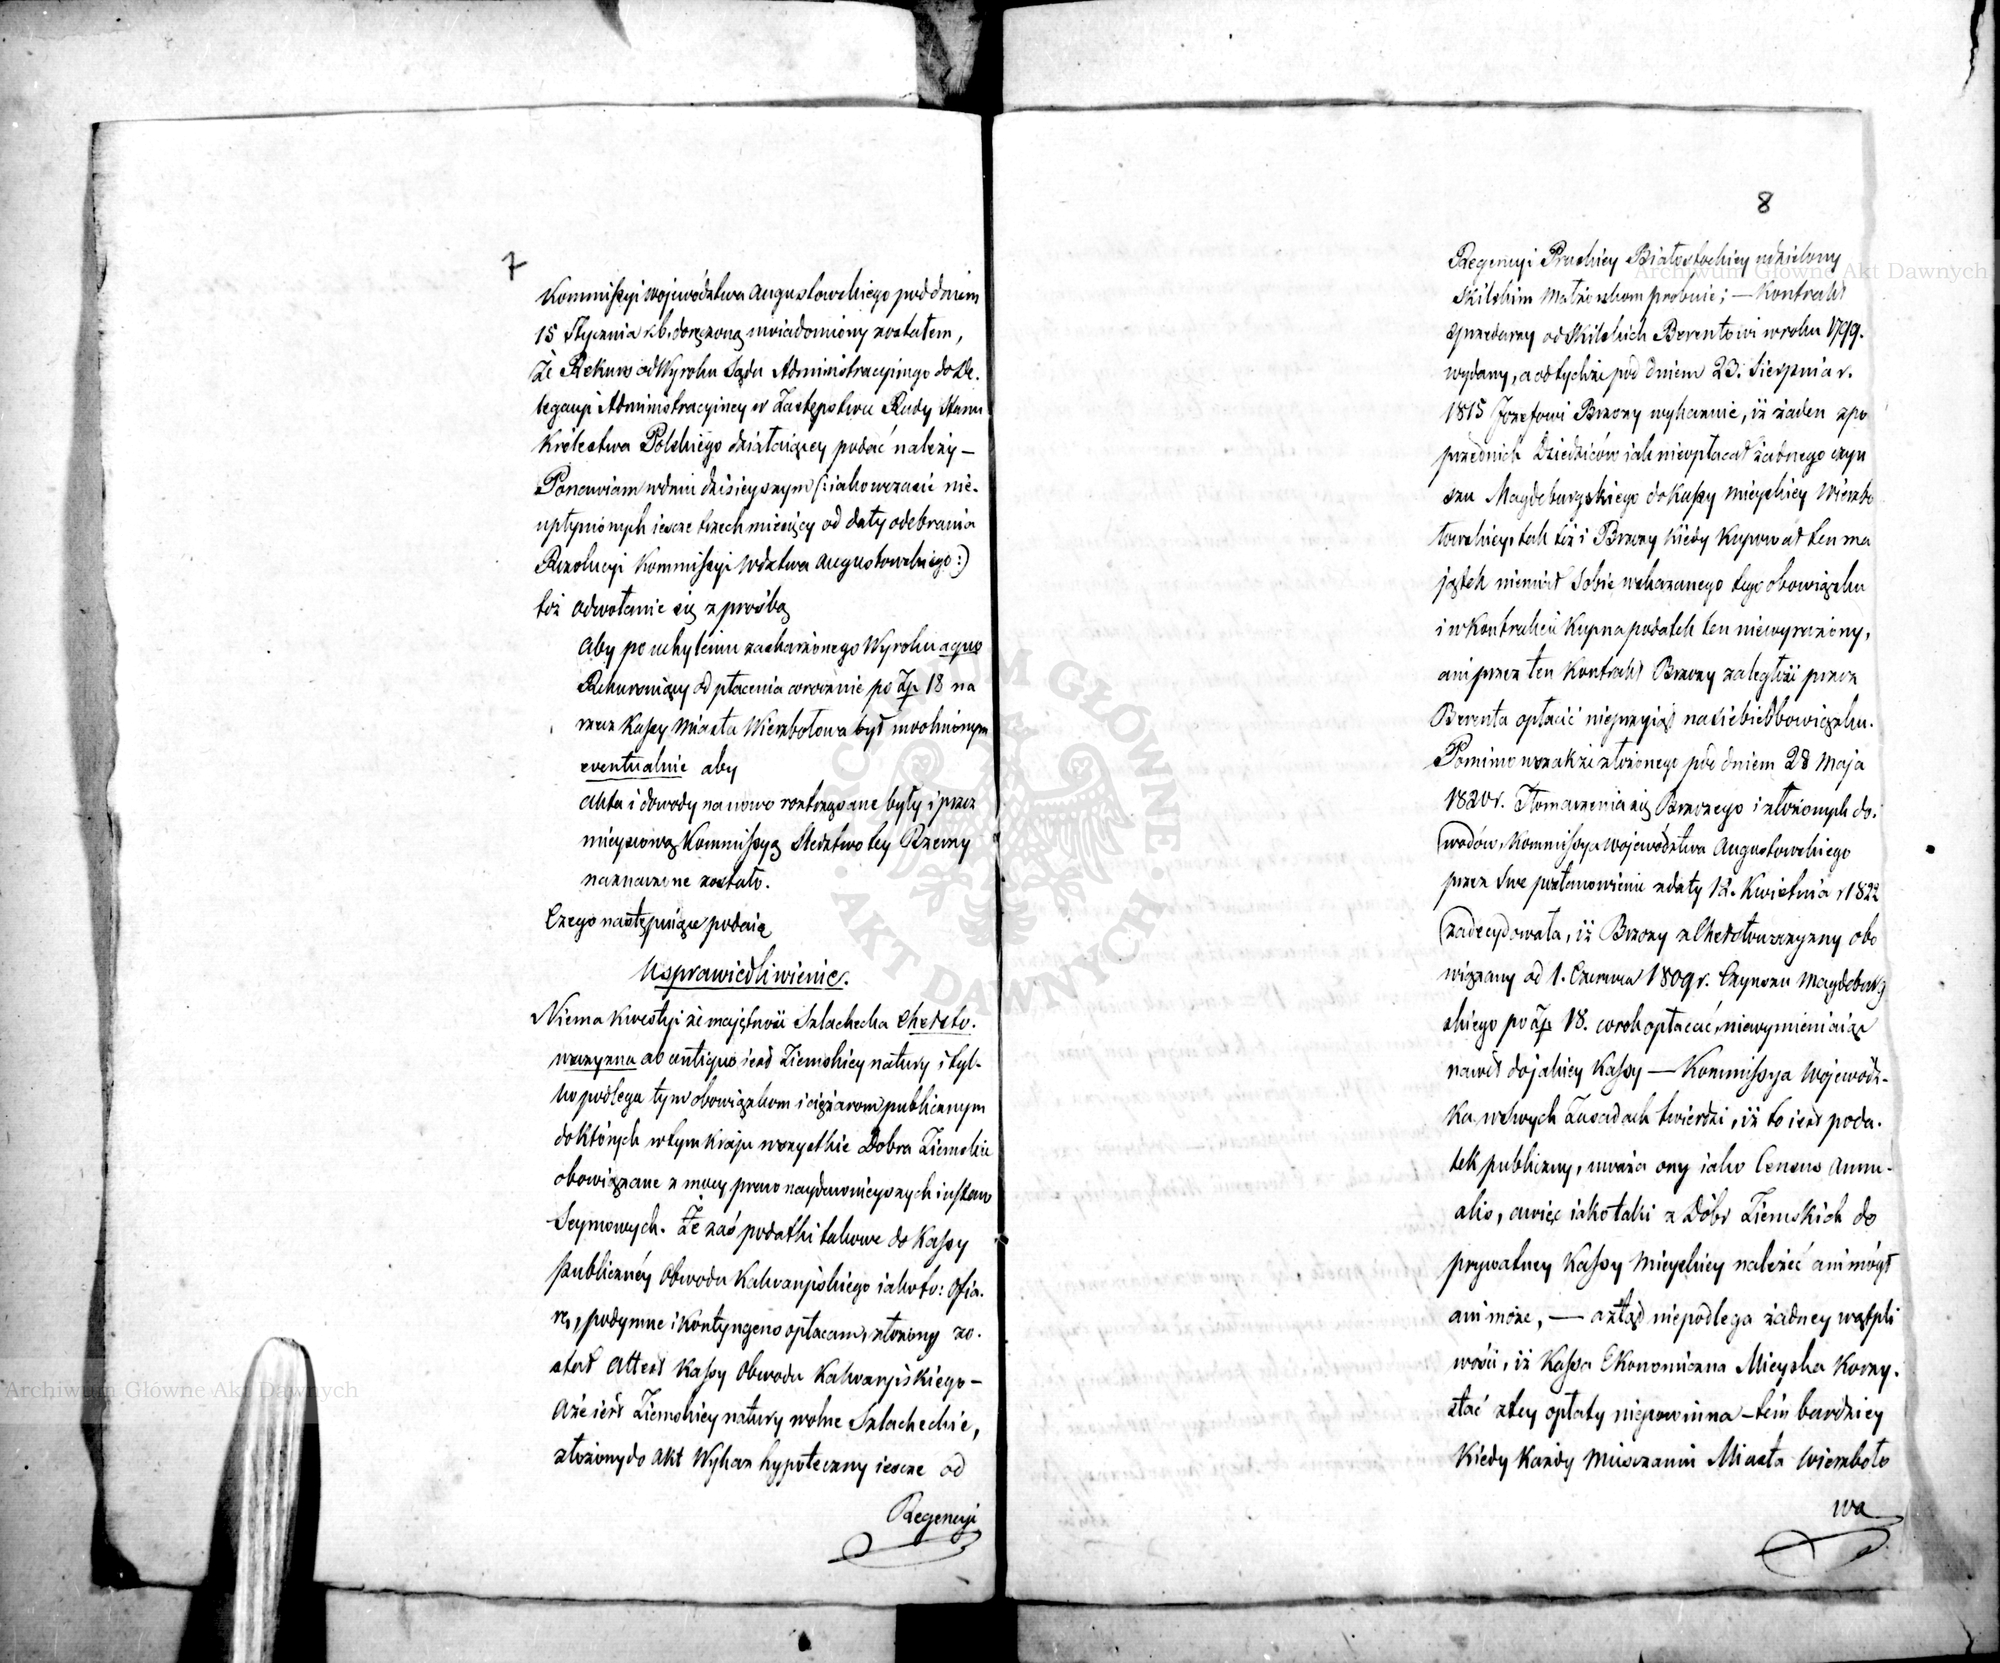 7
Kommissyi Województwa Augustowskiego pod dniem
15 Stycznia r.b. doręczoną uwiadomiony zostałem,
że Rekurs od Wyroku Sądu Administracyinego do De-
legacyi Administracyiney w Zastępstwie Rady Stanu
Królestwa Polskiego działaiącey podać należy —
Ponawiam w dniu dzisieyszym (: iako w czasie nie-
upłynionych ieszcze trzech miesięcy od daty odebrania
Rezolucyi Kommissyi Wdztwa Augustowskiego :)
też odwołanie się z prośbą
aby po uchyleniu zaskarżonego Wyroku a quo
Rekuruiący od płacenia corocznie po Zp 18 na
rzecz Kassy Miasta Wierzbołowa był uwolnionym
eventualnie aby
akta i dowody na nowo roztrząsane były i przez
mieyscową Kommissyą Sledztwo tey Rzeczy
naznaczone zostało.
Czego następuiące podaię
Usprawiedliwienie.
Niema kwestyi że maiętność Szlachecka Chełsto-
wszczyzna ab antiquo iest Ziemskiey natury i tyl-
ko podlega tym obowiązkom i ciężarom publicznym
do których w tym kraju wszystkie Dobra Ziemskie
obowiązane z mocy praw naydawnieyszych i ustaw
Seymowych. Że zaś podatki takowe do Kassy
publiczney Obwodu Kalwaryiskiego iako to: Ofia-
rę, podymne i Kontyngens opłacam, złożony zo-
stał Attest Kassy Obwodu Kalwaryiskiego —
A że iest Ziemskiey natury wolne Szlacheckie,
złożony do Akt Wykaz hypoteczny ieszcze od
Regencyi
8
Regencyi Pruskiey Białostockiey udzielony
Skilskim Małżonkom probuie; — Kontrakt
sprzedarzy od Skilskich Berentowi w roku 1799.
wydany, a od tychże pod dniem 23. Sierpnia r.
1815 Józefowi Brzozy wykazuie, iż żaden z po
przednich Dziedziców iak nieopłacał żadnego czyn
szu Magdeburgskiego do Kassy mieyskiey Wierzbo
łowskiey tak też i Brzozy kiedy kupował ten ma
jątek niemiał sobie wskazanego tego obowiązku
i w Kontrakcie Kupna podatek ten niewyrażony,
ani przez ten Kontrakt Brzozy zaległość przez
Berenta opłacić nieprzyiął na siebie Obowiązku.
Pomimo wszakże złożonego pod dniem 28 Maja
1820 r. Tłomaczenia się Brzozego i złożonych do-
wodów, Kommissya Województwa Augustowskiego
przez swe postanowienie z daty 12. Kwietnia r 1822
zadecydowała, iż Brzozy z Chełstowszczyzny obo
wiązany od 1. Czerwca 1809 r. Czynszu Magdeburg
skiego po Zp 18. co rok opłacać, niewymieniaiąc
nawet do jakiey Kassy — Kommissya Wojewódz-
ka w swych Zasadach twierdzi, iż to iest poda-
tek publiczny, uważa ony iako Census Annu-
alis, a więc iako taki z Dóbr Ziemskich do
prywatney Kassy Mieyskiey należeć ani mógł
ani może, — a ztąd niepodlega żadney wątpli
wości, iż Kassa Ekonomiczna Mieyska korzy-
stać z tey opłaty niepowinna — tém bardziey
kiedy każdy Mieszkaniec Miasta Wierzboło
wa
Archiwum Główne Akt Dawnych
Archiwum Główne Akt Dawnych
ARCHIWUM GŁÓWNE · AKT DAWNYCH ·